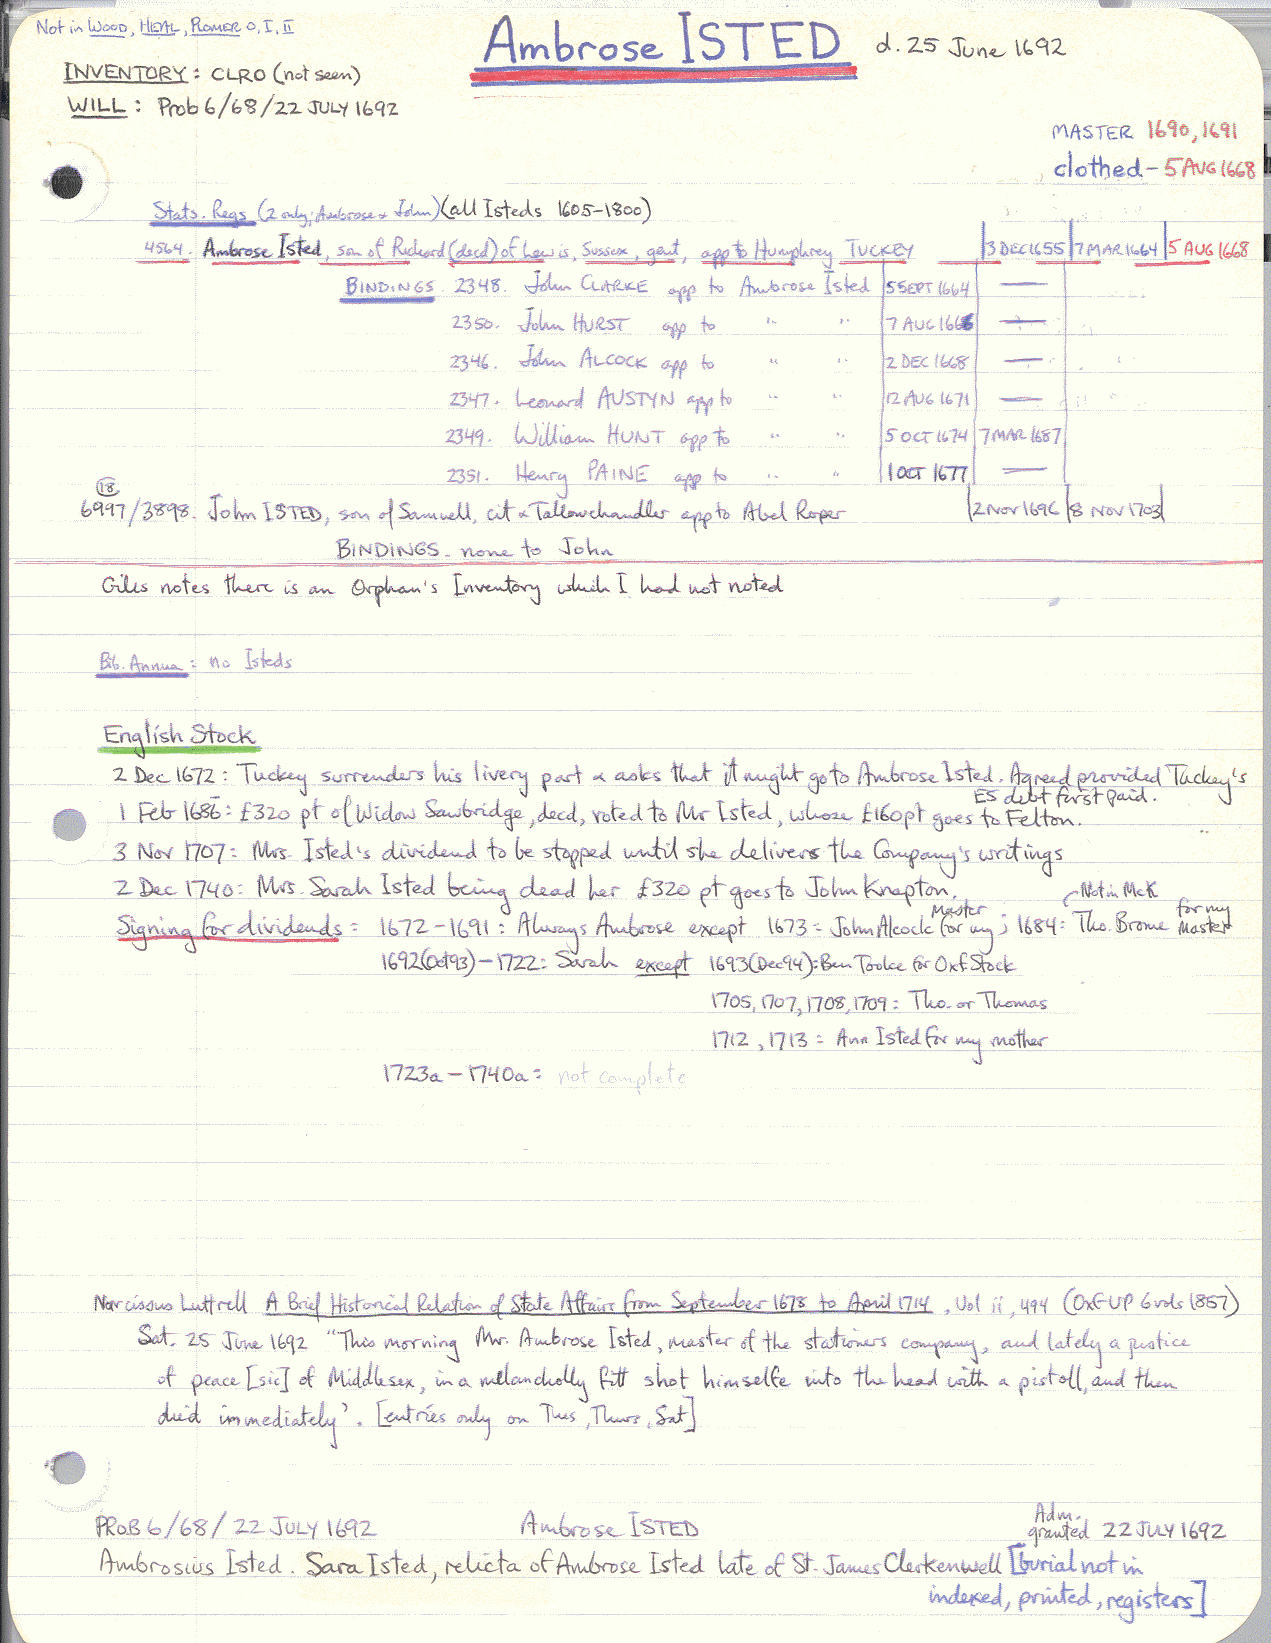 Not in Wood, HEAL, PLOMER 0, I, II
Ambrose ISTED d. 25 June 1692
INVENTORY: CLRO (not seen)
WILL: Prob 6/68/22 JULY 1692
MASTER 1690, 1691
clothed - 5 AUG 1668
Stats. Regs (2 only; Ambrose & John) (all Isteds 1605-1800)
4564. Ambrose Isted, son of Richard (decd) of Lewis, Sussex, gent, app to Humphrey TUCKEY 3 DEC 1655 7 MAR 1664 5 AUG 1668
BINDINGS 2348. John CLARKE app to Ambrose Isted 5 SEPT 1664 —
2350. John HURST app to " " 7 AUG 1666 —
2346. John ALCOCK app to " " 2 DEC 1668 —
2347. Leonard AUSTYN app to " " 12 AUG 1671 —
2349. William HUNT app to " " 5 OCT 1674 7 MAR 1687
2351. Henry PAINE app to " " 1 OCT 1677 —
18
6997/3898. John ISTED, son of Samuell, cit & Tallowchandler app to Abel Roper 2 NOV 1696 8 NOV 1703
BINDINGS - none to John
Giles notes there is an Orphan's Inventory which I had not noted
Bib. Annua: no Isteds
English Stock
2 Dec 1672: Tuckey surrenders his livery part & asks that it might go to Ambrose Isted. Agreed provided Tuckey's
ES debt first paid.
1 Feb 1686: £320 pt of Widow Sawbridge, decd, voted to Mr Isted, whose £160 pt goes to Felton.
3 Nov 1707: Mrs. Isted's dividend to be stopped until she delivers the Company's writings
2 Dec 1740: Mrs. Sarah Isted being dead her £320 pt goes to John Knapton.
Not in McK
Signing for dividends = 1672-1691: Always Ambrose except 1673 = John Alcock for my Master; 1684: Tho. Brome for my Master
1692(Oct 93)-1722: Sarah except 1693 (Dec 94): Ben Tooke for Oxf Stock
1705, 1707, 1708, 1709: Tho. or Thomas
1712, 1713 = Ann Isted for my mother
1723a - 1740a = not complete
Narcissus Luttrell A Brief Historical Relation of State Affairs from September 1678 to April 1714, Vol ii, 494 (Oxf UP 6 vols 1857)
Sat. 25 June 1692 "This morning Mr. Ambrose Isted, master of the stationers company, and lately a justice
of peace [sic] of Middlesex, in a melancholly fitt shot himselfe into the head with a pistoll, and then
died immediately'. [entries only on Tues, Thurs, Sat]
PROB 6/68/22 JULY 1692 Ambrose ISTED Adm. granted 22 JULY 1692
Ambrosius Isted. Sara Isted, relicta of Ambrose Isted late of St. James Clerkenwell [burial not in
indexed, printed, registers]